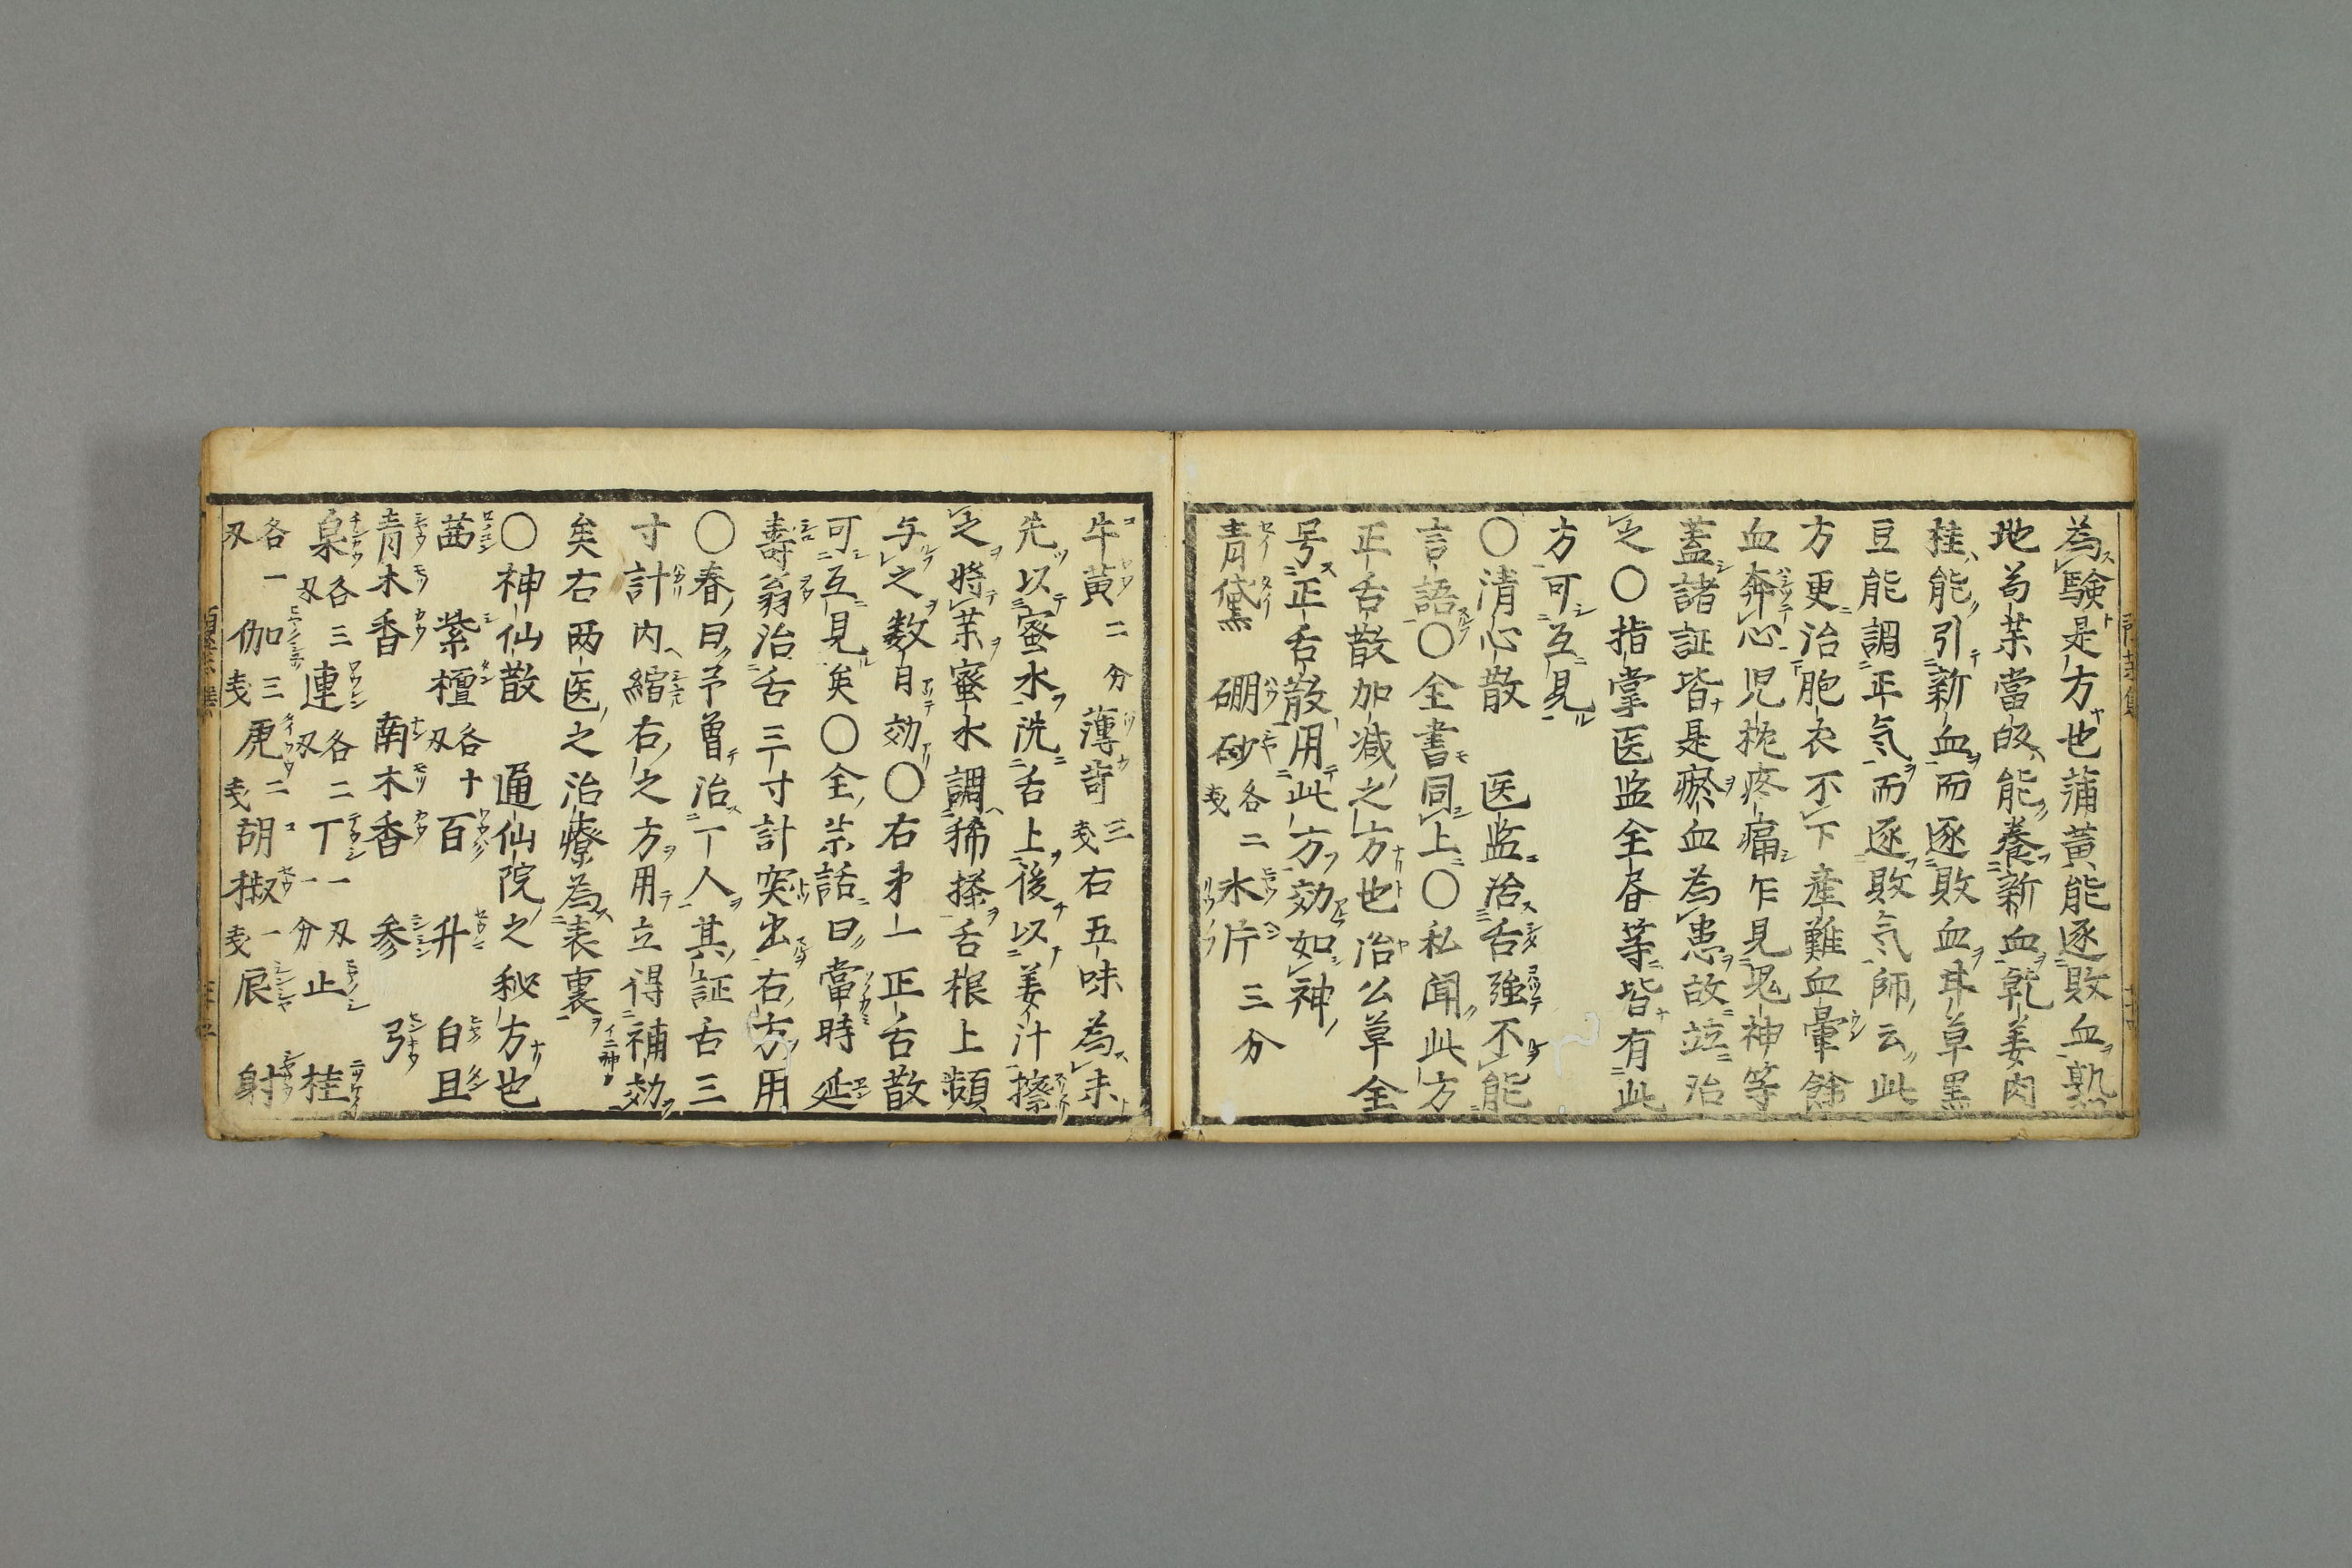 為験是方也蒲黄能逐敗血熟
地芍薬當皈能養新血乾姜肉
桂能引新血而逐敗血甘草黒
豆能調正気而逐敗気師云此
方更治胞衣不下産難血暈餘
血奔心児枕疼痛乍見鬼神等
蓋諸証皆是瘀血為患故並治
之〇指掌医监全昏等皆有此
方可互見
〇清心散 医监治舌強不能
言語〇全書同上〇私聞此方
正舌散加减之方也治公草全
号正舌散用此方効如神
青黛 硼砂各二戋氷片三分
牛黄二分薄苛三戋右五味為末
先以蜜水洗舌上後以姜汁擦
之将薬蜜水調稀搽舌根上頻
与之数日効〇右才一正舌散
可互見矣〇全柰話曰當時延
壽翁治舌三寸計突出右方用
〇春曰予曽治一人其証舌三
寸計内縮右之方用立得補効
矣右两医之治療為表裏
〇神仙散 通仙院之秘方也
茴 紫檀各十刄百 升 白且
青木香 南木香 参 弓
各三刄連各二刄丁一刄一分止 桂
各一刄伽三戋乕二戋胡椒一戋辰 射